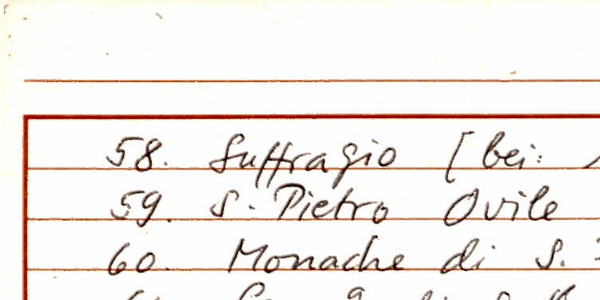 58. Suffragio [bei:
59. S. Pietro Ovile
60. Monache di S.